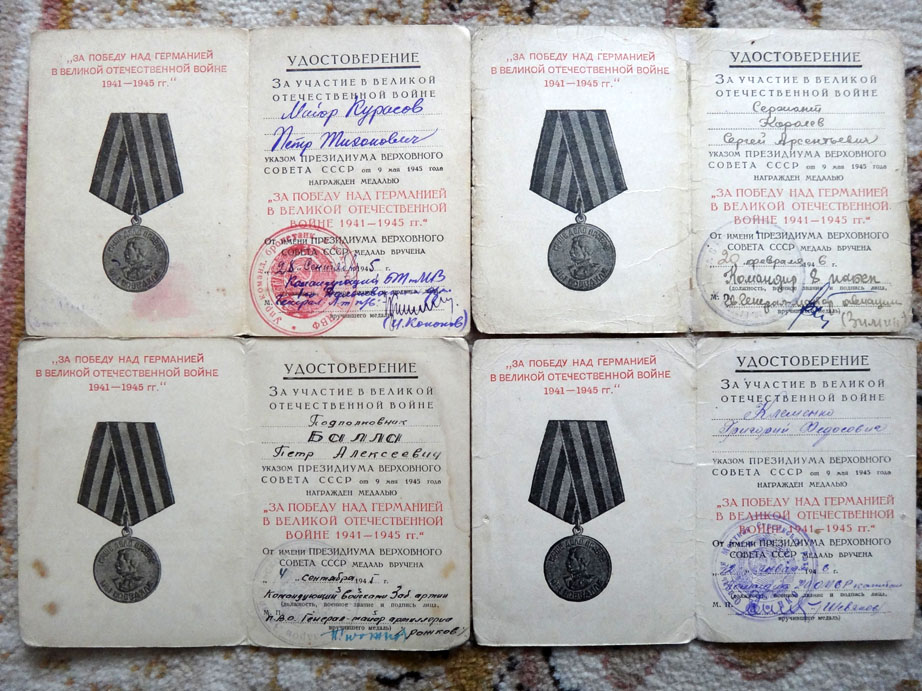 „ЗА ПОБЕДУ НАД ГЕРМАНИЕЙ
В ВЕЛИКОЙ ОТЕЧЕСТВЕННОЙ ВОЙНЕ
1941—1945 гг."
УДОСТОВЕРЕНИЕ
ЗА УЧАСТИЕ В ВЕЛИКОЙ
ОТЕЧЕСТВЕННОЙ ВОЙНЕ
Майор Курасов
Петр Тихонович
УКАЗОМ ПРЕЗИДИУМА ВЕРХОВНОГО
СОВЕТА СССР от 9 мая 1945 года
НАГРАЖДЕН МЕДАЛЬЮ
„ЗА ПОБЕДУ НАД ГЕРМАНИЕЙ
В ВЕЛИКОЙ ОТЕЧЕСТВЕННОЙ
ВОЙНЕ 1941—1945 гг."
От имени ПРЕЗИДИУМА ВЕРХОВНОГО
СОВЕТА СССР МЕДАЛЬ ВРУЧЕНА
1945 г.
Командующий БТ и МВ
вручившего медаль)
(И. Кононов)
„ЗА ПОБЕДУ НАД ГЕРМАНИЕЙ
В ВЕЛИКОЙ ОТЕЧЕСТВЕННОЙ ВОЙНЕ
1941—1945 гг."
УДОСТОВЕРЕНИЕ
ЗА УЧАСТИЕ В ВЕЛИКОЙ
ОТЕЧЕСТВЕННОЙ ВОЙНЕ
Сержант
Королев
Сергей Арсентьевич
УКАЗОМ ПРЕЗИДИУМА ВЕРХОВНОГО
СОВЕТА СССР от 9 мая 1945 года
НАГРАЖДЕН МЕДАЛЬЮ
„ЗА ПОБЕДУ НАД ГЕРМАНИЕЙ
В ВЕЛИКОЙ ОТЕЧЕСТВЕННОЙ
ВОЙНЕ 1941—1945 гг."
От имени ПРЕЗИДИУМА ВЕРХОВНОГО
СОВЕТА СССР МЕДАЛЬ ВРУЧЕНА
20 февраля 1946 г.
Командир
(должность, военное звание и подпись лица,
М. П.
вручившего медаль)
„ЗА ПОБЕДУ НАД ГЕРМАНИЕЙ
В ВЕЛИКОЙ ОТЕЧЕСТВЕННОЙ ВОЙНЕ
1941—1945 гг."
УДОСТОВЕРЕНИЕ
ЗА УЧАСТИЕ В ВЕЛИКОЙ
ОТЕЧЕСТВЕННОЙ ВОЙНЕ
Подполковник
Балла
Петр Алексеевич
УКАЗОМ ПРЕЗИДИУМА ВЕРХОВНОГО
СОВЕТА СССР от 9 мая 1945 года
НАГРАЖДЕН МЕДАЛЬЮ
„ЗА ПОБЕДУ НАД ГЕРМАНИЕЙ
В ВЕЛИКОЙ ОТЕЧЕСТВЕННОЙ
ВОЙНЕ 1941—1945 гг."
От имени ПРЕЗИДИУМА ВЕРХОВНОГО
СОВЕТА СССР МЕДАЛЬ ВРУЧЕНА
„4" сентября 1945 г.
Командующий войсками Заб армии
(должность, военное звание и подпись лица,
М. П.
ПВО. Генерал-майор артиллерии
вручившего медаль) Рожков
„ЗА ПОБЕДУ НАД ГЕРМАНИЕЙ
В ВЕЛИКОЙ ОТЕЧЕСТВЕННОЙ ВОЙНЕ
1941—1945 гг."
УДОСТОВЕРЕНИЕ
ЗА УЧАСТИЕ В ВЕЛИКОЙ
ОТЕЧЕСТВЕННОЙ ВОЙНЕ
Клеменко
Григорий Федосович
УКАЗОМ ПРЕЗИДИУМА ВЕРХОВНОГО
СОВЕТА СССР от 9 мая 1945 года
НАГРАЖДЕН МЕДАЛЬЮ
„ЗА ПОБЕДУ НАД ГЕРМАНИЕЙ
В ВЕЛИКОЙ ОТЕЧЕСТВЕННОЙ
ВОЙНЕ 1941—1945 гг."
От имени ПРЕЗИДИУМА ВЕРХОВНОГО
СОВЕТА СССР МЕДАЛЬ ВРУЧЕНА
(должность, военное звание и подпись лица,
М. П.
вручившего медаль)